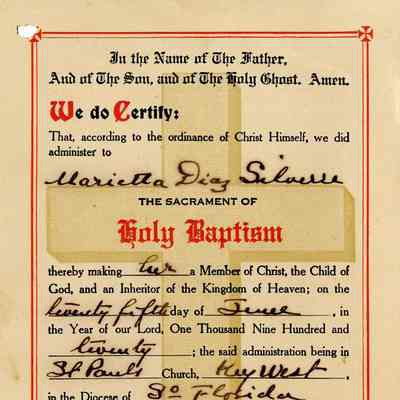 In the Name of The Father,
And of The Son, and of The Holy Ghost. Amen.
We do Certify:
That, according to the ordinance of Christ Himself, we did
administer to
Marietta Diaz Silvera
THE SACRAMENT OF
Holy Baptism
thereby making her a Member of Christ, the Child of
God, and an Inheritor of the Kingdom of Heaven; on the
twenty fifth day of June, in
the Year of our Lord, One Thousand Nine Hundred and
twenty; the said administration being in
St Paul's Church, Key West,
in the Diocese of So Florida